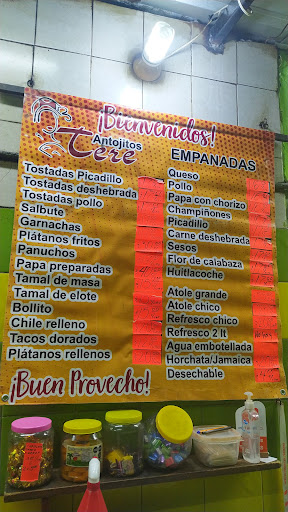 ¡Bienvenidos!
Antojitos
Tere
Tostadas Picadillo
Tostadas deshebrada
Tostadas pollo
Salbute
Garnachas
Plátanos fritos
Panuchos
Papa preparadas
Tamal de masa
Tamal de elote
Bollito
Chile relleno
Tacos dorados
Plátanos rellenos
EMPANADAS
Queso
Pollo
Papa con chorizo
Champiñones
Picadillo
Carne deshebrada
Sesos
Flor de calabaza
Huitlacoche
Atole grande
Atole chico
Refresco chico
Refresco 2 lt
Agua embotellada
Horchata/Jamaica
Desechable
¡Buen Provecho!